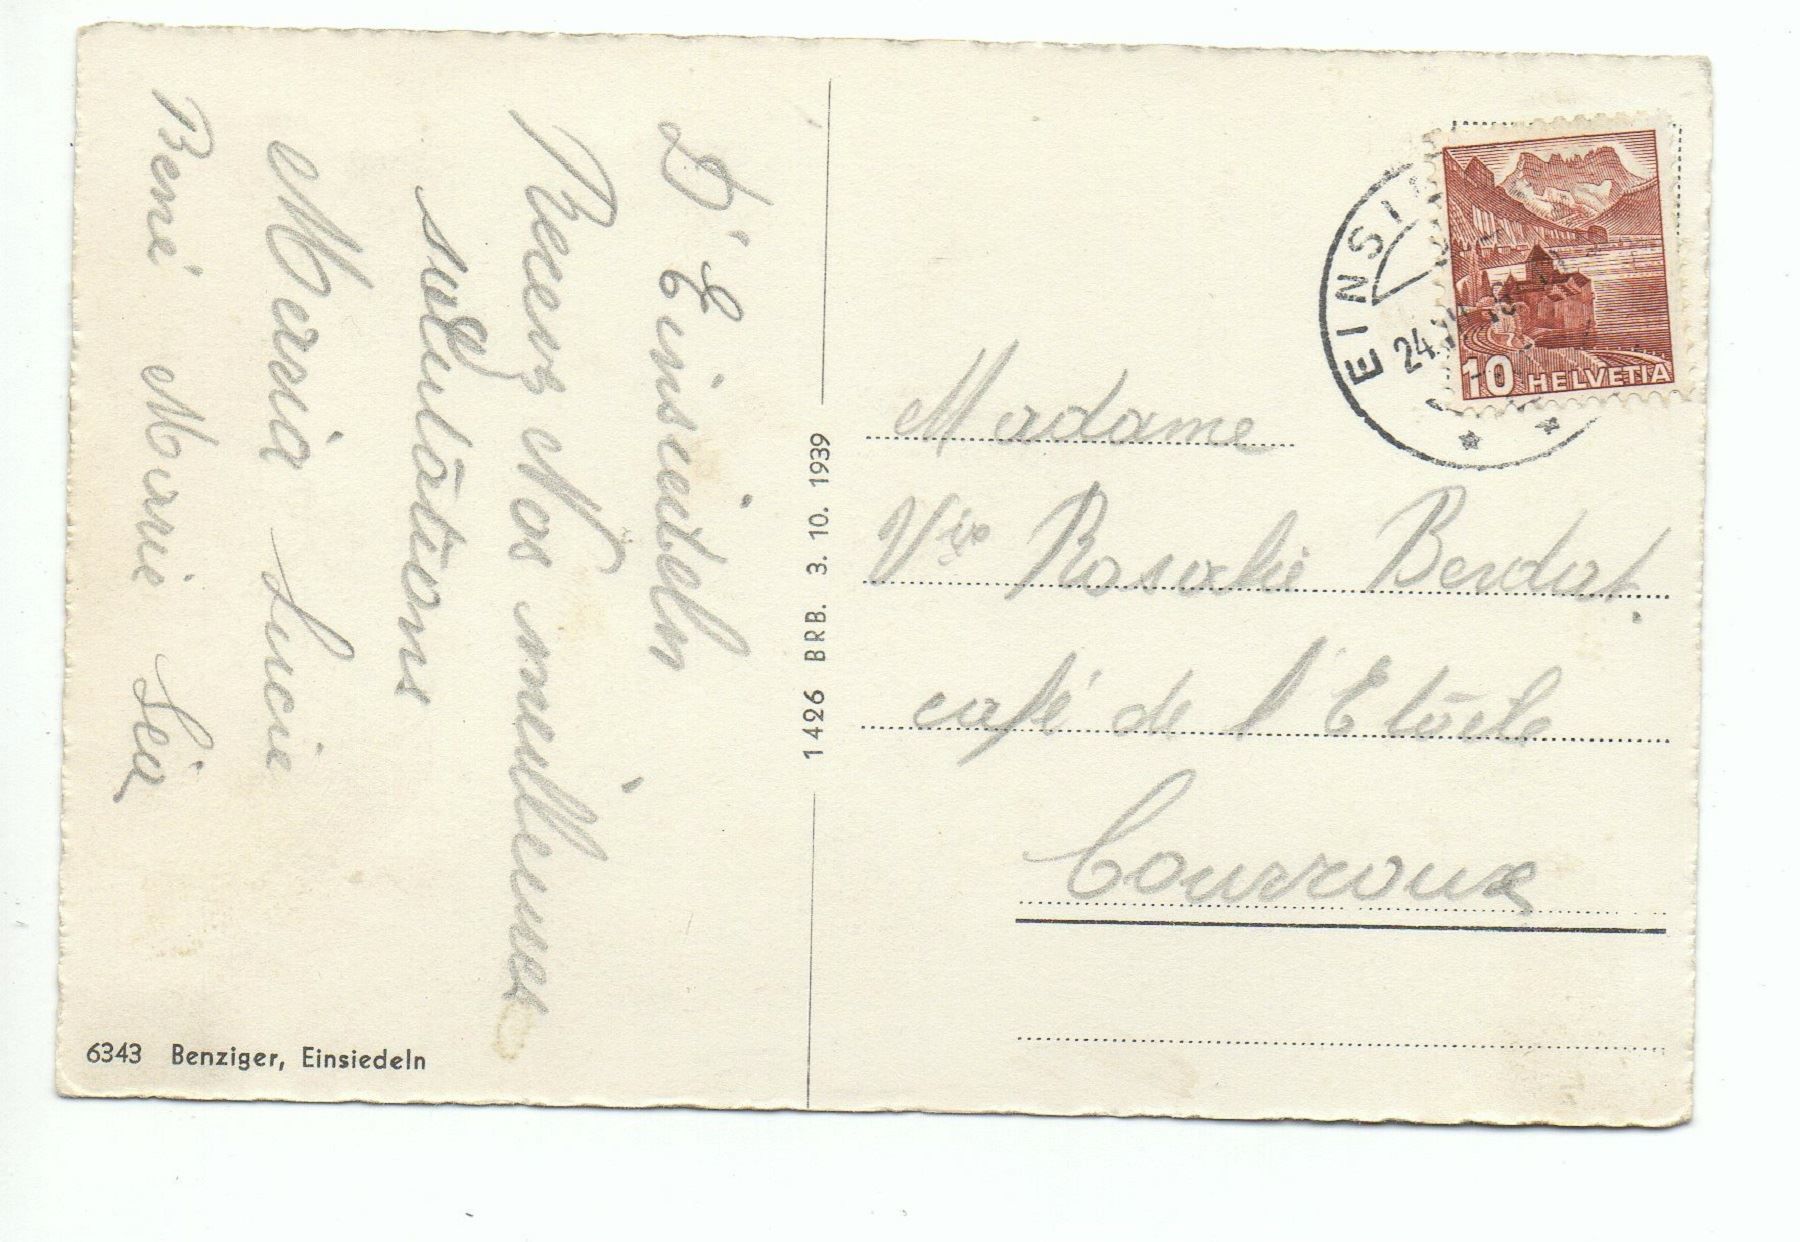 D'Einsiedeln
Recevez Nos meilleures
salulations
Maria Lucie
René Marie Léa
6343 Benziger, Einsiedeln
1426 BRB. 3. 10. 1939
EINSI
24.
10 HELVETIA
Madame
Vve Rosalie Berdat.
café de l'Etoile
Courroux